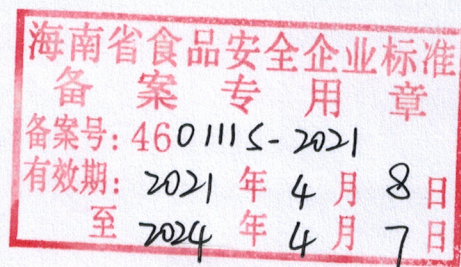 海南省食品安全企业标准
备案专用章
备案号：460111S-2021
有效期：2021年4月8日
至2024年4月7日